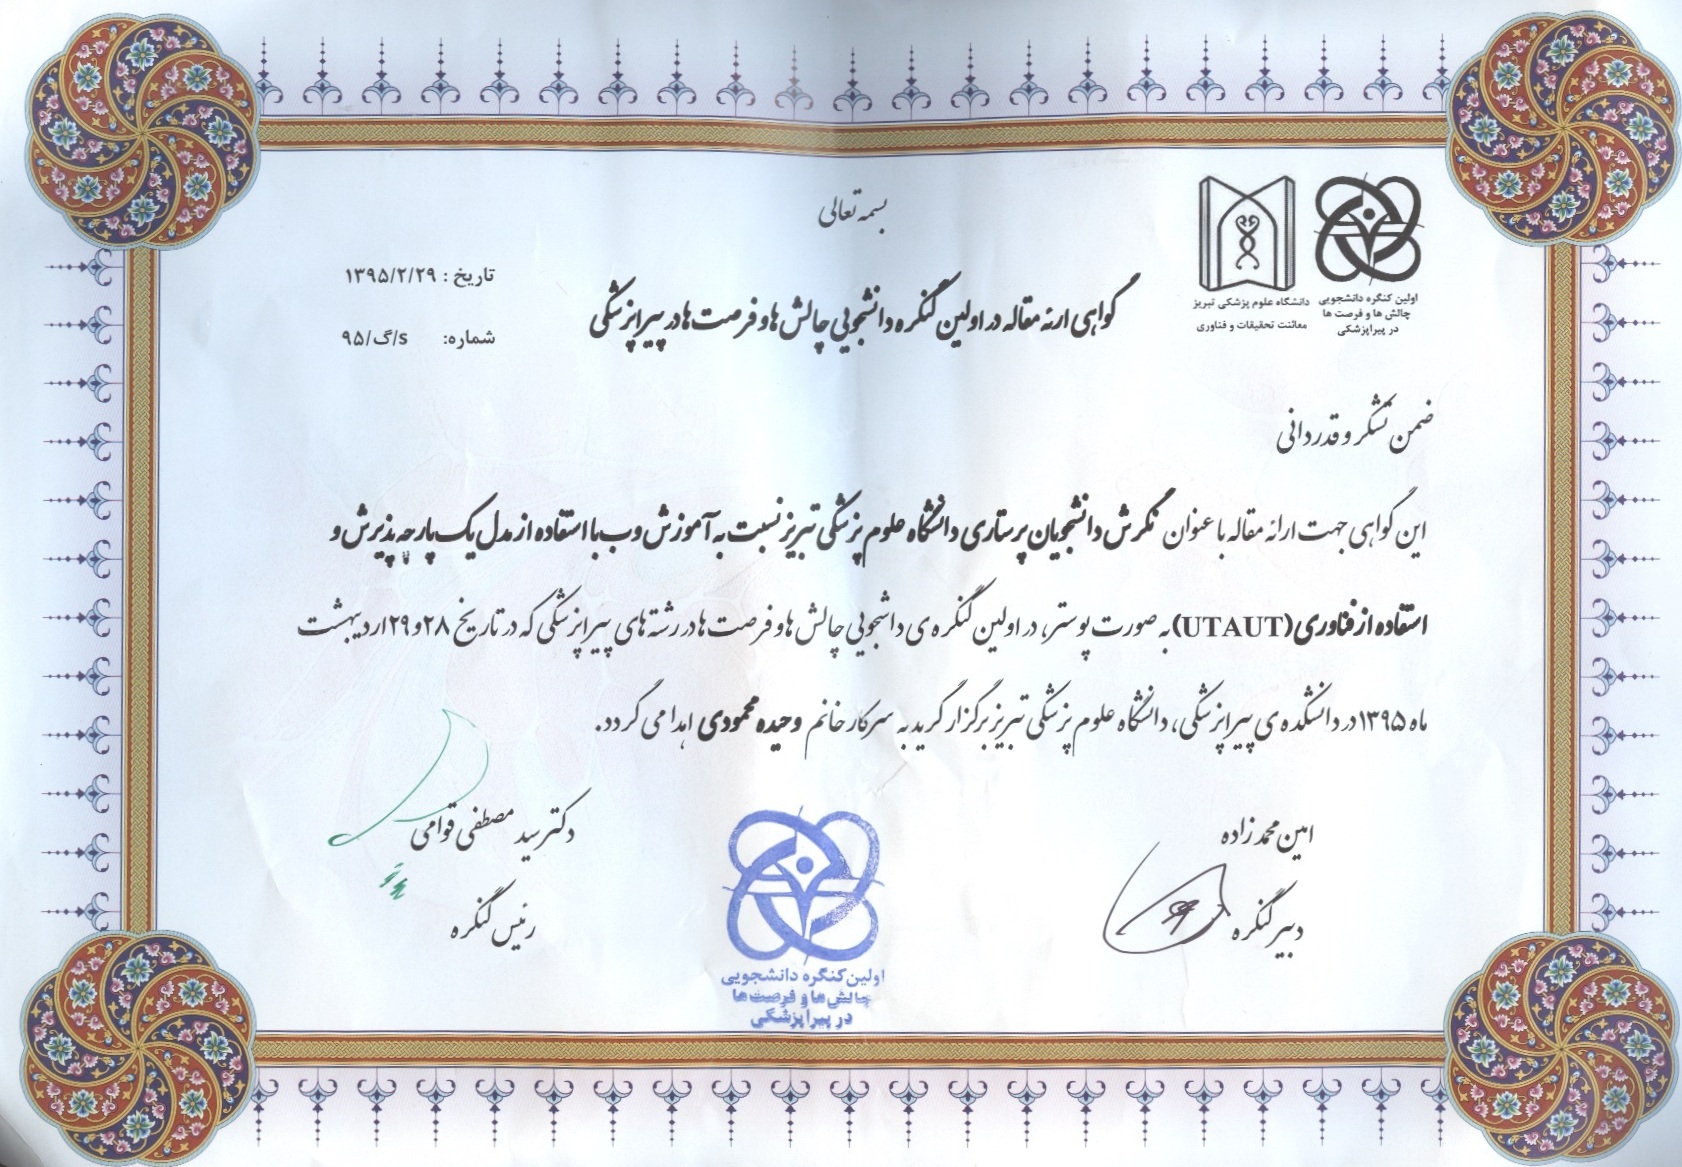 بسمه تعالی
اولین کنگره دانشجویی
چالش ها و فرصت ها
در پیراپزشکی
دانشگاه علوم پزشکی تبریز
معاونت تحقیقات و فناوری
تاریخ : ۱۳۹۵/۲/۲۹
شماره: s/گ/۹۵
گواهی ارئه مقاله در اولین کنگره دانشجویی چالش ها و فرصت ها در پیراپزشکی
ضمن تشکر و قدردانی
این گواهی جهت ارائه مقاله با عنوان نگرش دانشجویان پرستاری دانشگاه علوم پزشکی تبریز نسبت به آموزش وب با استفاده از مدل یک پارچه پذیرش و
استفاده از فناوری (UTAUT) به صورت پوستر، در اولین کنگره ی داشجویی چالش ها و فرصت ها در رشته های پیراپزشکی که در تاریخ ۲۸ و ۲۹ اردیبهشت
ماه ۱۳۹۵ در دانشکده ی پیراپزشکی، دانشگاه علوم پزشکی تبریز برگزار گرید به سرکار خانم وحیده محمودی اهدا می گردد.
امین محمدزاده
دبیر کنگره
دکتر سید مصطفی قوامی
رئیس کنگره
اولین کنگره دانشجویی
چالش ها و فرصت ها
در پیراپزشکی